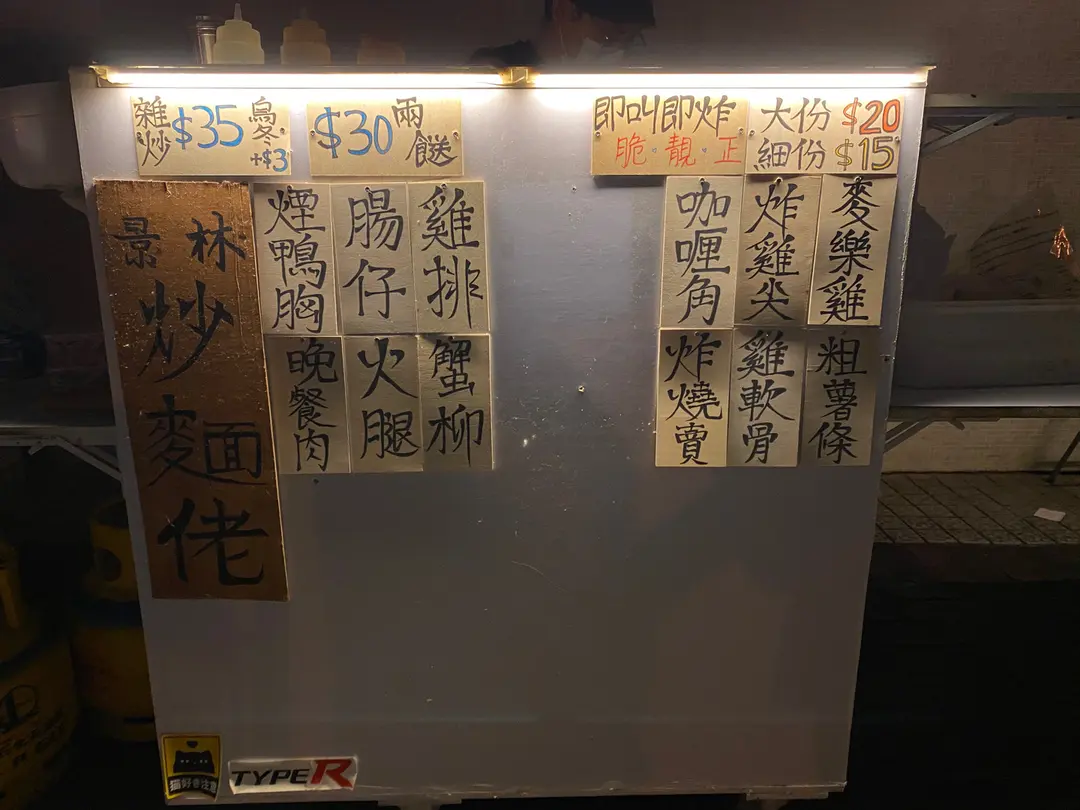 雜炒 $35 烏冬 +$3
$30 兩餸
景林
炒麵佬
煙鴨胸
腸仔
雞排
晚餐肉
火腿
蟹柳
即叫即炸
脆·靚·正
大份 $20
細份 $15
咖喱角
炸雞尖
麥樂雞
炸燒賣
雞軟骨
粗薯條
猫好き注意
TYPE R